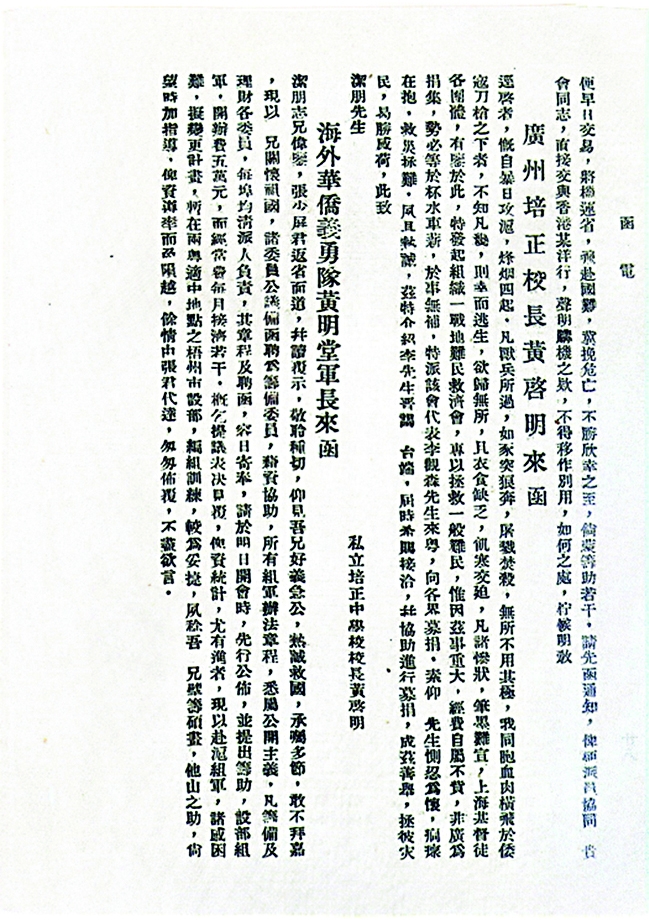 函電
便早日交易，將機運省，飛赴國難，冀挽危亡，不勝欣幸之至，倘蒙籌助若干，請先函通知，俾派員協同 貴
會同志，直接交與香港某洋行，聲明購機之欵，不得移作別用，如何之處，佇候明敎
廣州培正校長黃啓明來函
逕啓者，慨自暴日攻滬，烽烟四起，凡獸兵所過，如豕突狼奔，屠戮焚殺，無所不用其極，我同胞血肉橫飛於倭
寇刀槍之下者，不知凡幾，則幸而逃生，欲歸無所，且衣食缺乏，飢寒交廹，凡諸慘狀，筆墨難宣，上海基督徒
各團體，有鑒於此，特發起組織一戰地難民救濟會，專以拯救一般難民，惟因茲事重大，經費自屬不貲，非廣爲
捐集，勢必等於杯水車薪，於事無補，特派該會代表李觀森先生來粤，向各界募捐，素仰 先生惻忍爲懷，痌瘝
在抱，救災拯難，夙具熱誠，茲特介紹李先生晋謁 台端，屆時希賜接洽，幷協助進行募捐，成茲善舉，拯彼災
民，曷勝感荷，此致
潔朋先生
私立培正中學校校長黃啓明
海外華僑義勇隊黃明堂軍長來函
潔朋志兄偉鑒，張少屏君返省面道，幷讀覆示，敬聆種切，仰見吾兄好義急公，熱誠救國，承囑多節，敢不拜嘉
，現以 兄關懷祖國，諸委員公議備函聘爲籌備委員，藉資協助，所有組軍辦法章程，悉屬公開主義，凡籌備及
理財各委員，每埠均淸派人負責，其章程及聘函，容日寄奉，請於明日開會時，先行公佈，並提出籌助，設部組
軍，開辦費五萬元，而經常費每月接濟若干，槪乞提議表决見覆，俾資統計，尤有進者，現以赴滬組軍，諸感困
難，擬變更計畫，暫在兩粤適中地點之梧州市設部，編組訓練，較爲妥捷，夙稔吾 兄壁籌碩畫，他山之助，尙
望時加指導，俾資遵率而免隕越，餘情由張君代達，匆匆佈覆，不盡欲言。